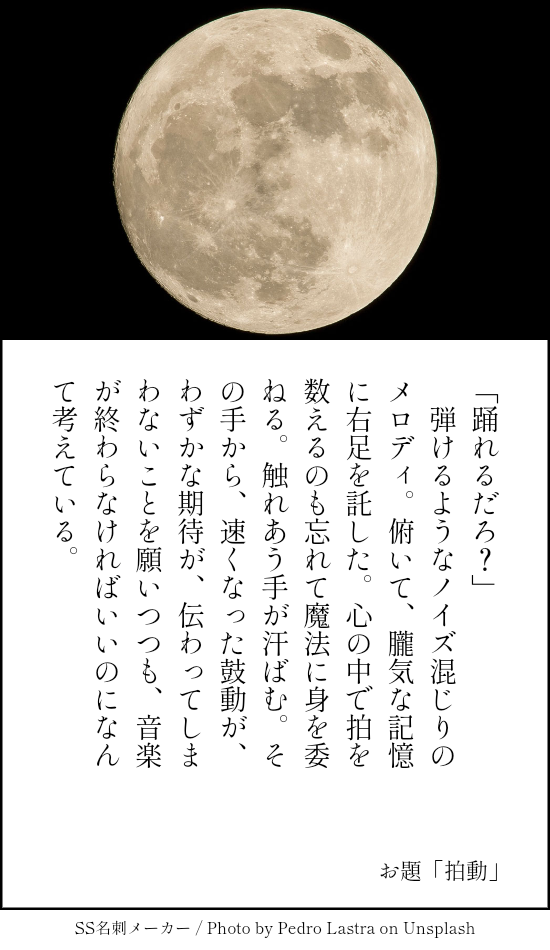 「踊れるだろ？」
　弾けるようなノイズ混じりの
メロディ。俯いて、朧気な記憶
に右足を託した。心の中で拍を
数えるのも忘れて魔法に身を委
ねる。触れあう手が汗ばむ。そ
の手から、速くなった鼓動が、
わずかな期待が、伝わってしま
わないことを願いつつも、音楽
が終わらなければいいのになん
て考えている。
お題「拍動」
SS名刺メーカー / Photo by Pedro Lastra on Unsplash